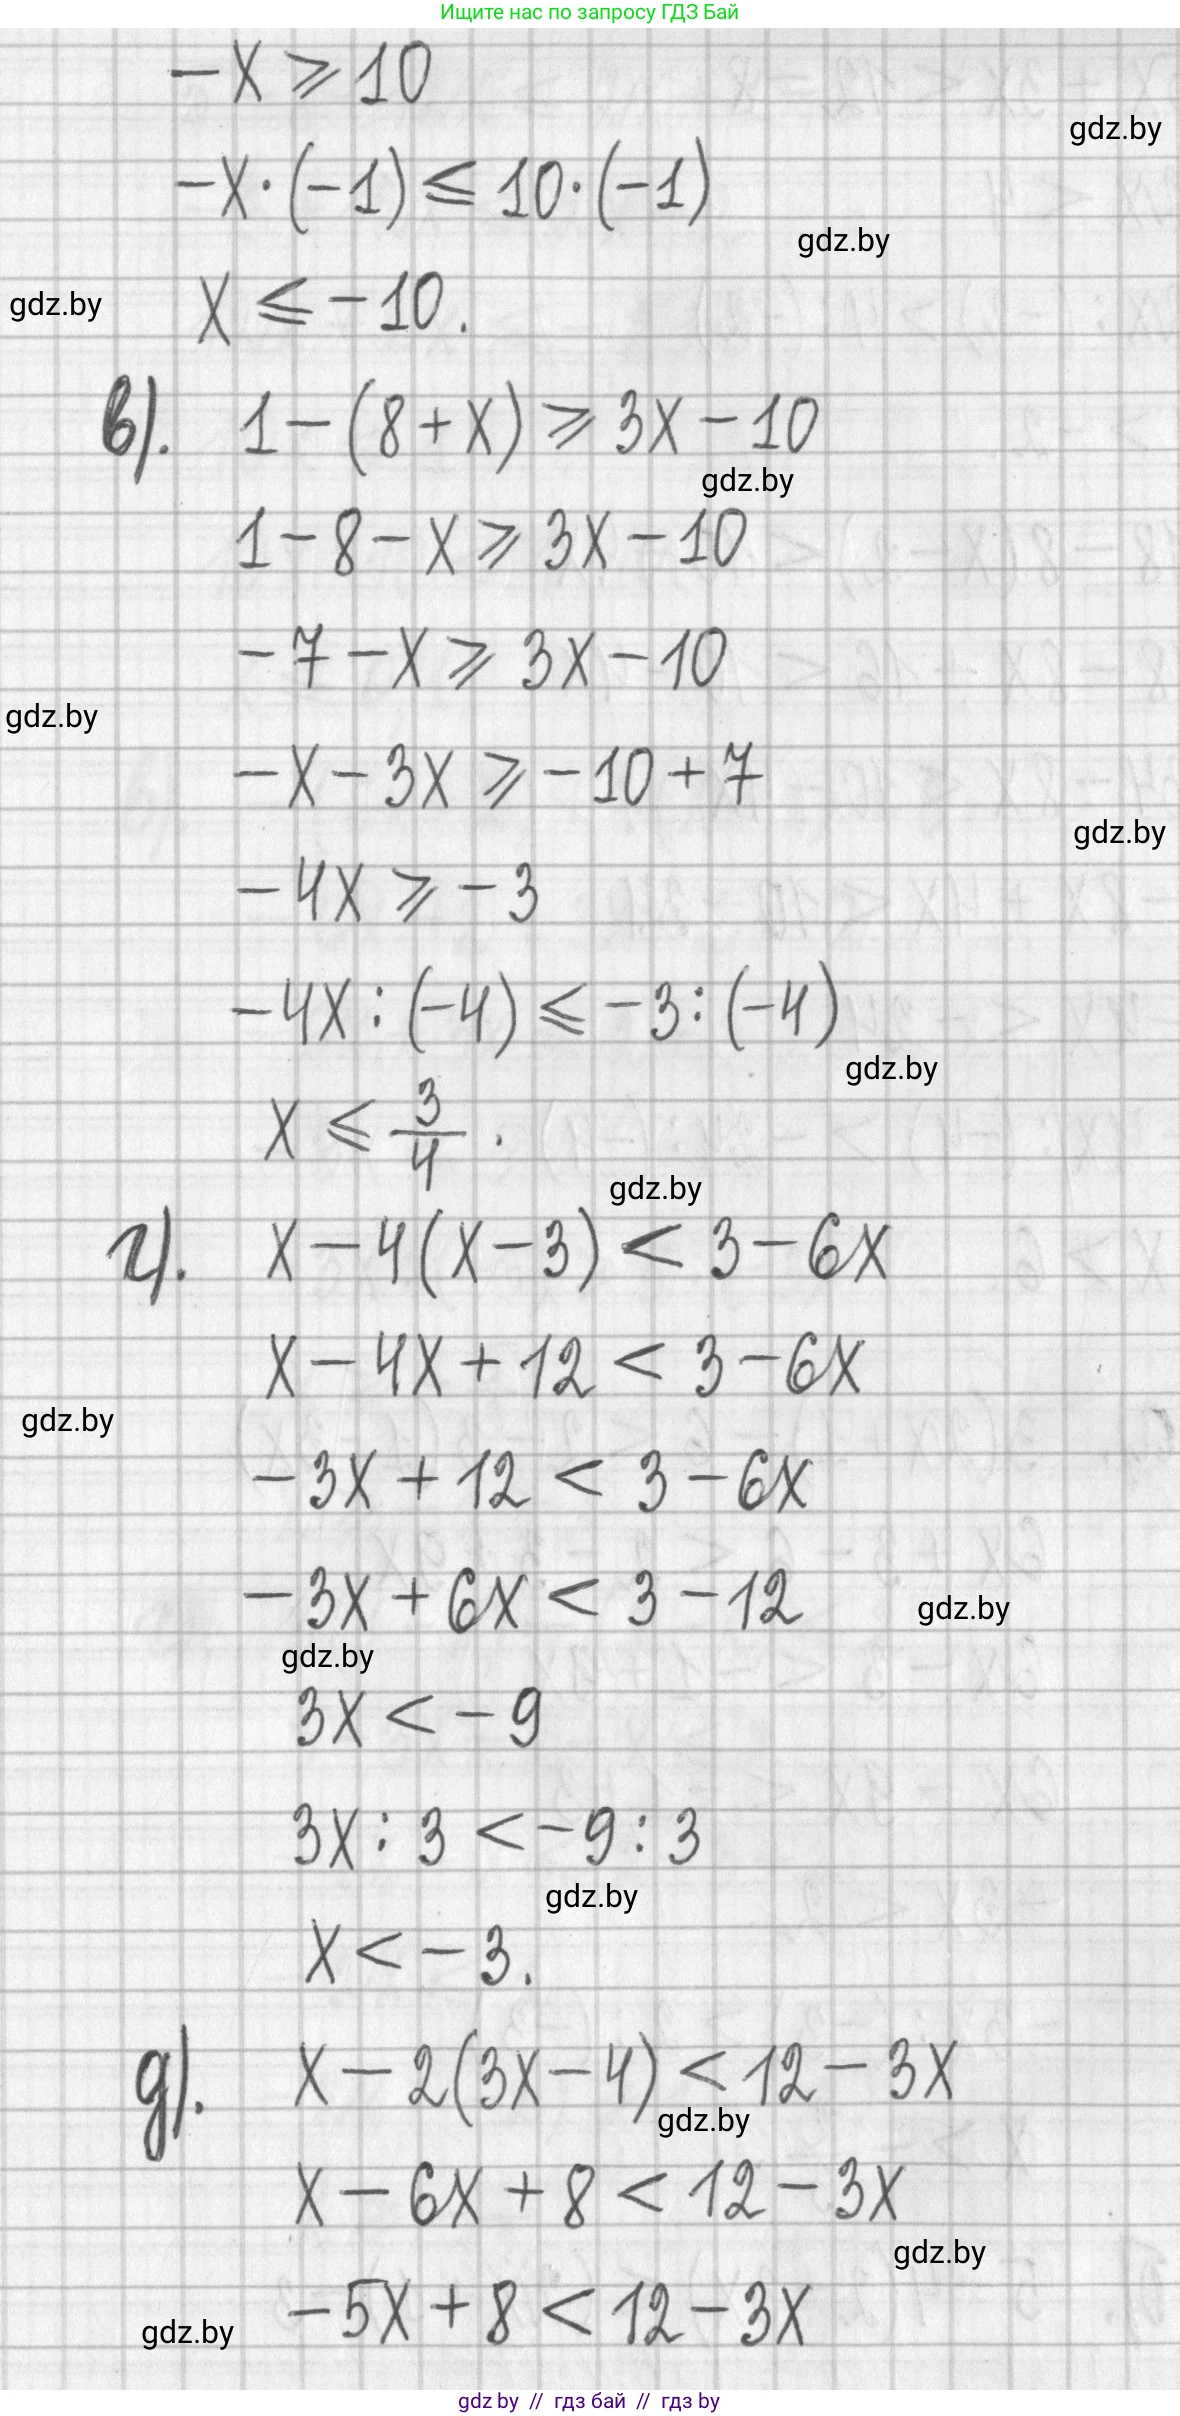 Ищите нас по запросу ГДЗ Бай
-x ⩾ 10
gdz.by
-x·(-1) ⩽ 10·(-1)
gdz.by
gdz.by
x ⩽ -10.
в). 1-(8+x) ⩾ 3x-10
gdz.by
1-8-x ⩾ 3x-10
-7-x ⩾ 3x-10
gdz.by
-x-3x ⩾ -10+7
gdz.by
-4x ⩾ -3
-4x:(-4) ⩽ -3:(-4)
gdz.by
x ⩽ 3/4.
gdz.by
г). x-4(x-3) < 3-6x
x-4x+12 < 3-6x
gdz.by
-3x+12 < 3-6x
-3x+6x < 3-12
gdz.by
gdz.by
3x < -9
3x:3 < -9:3
gdz.by
x < -3.
д). x-2(3x-4) < 12-3x
gdz.by
x-6x+8 < 12-3x
gdz.by
-5x+8 < 12-3x
gdz.by
gdz by // гдз бай // гдз by